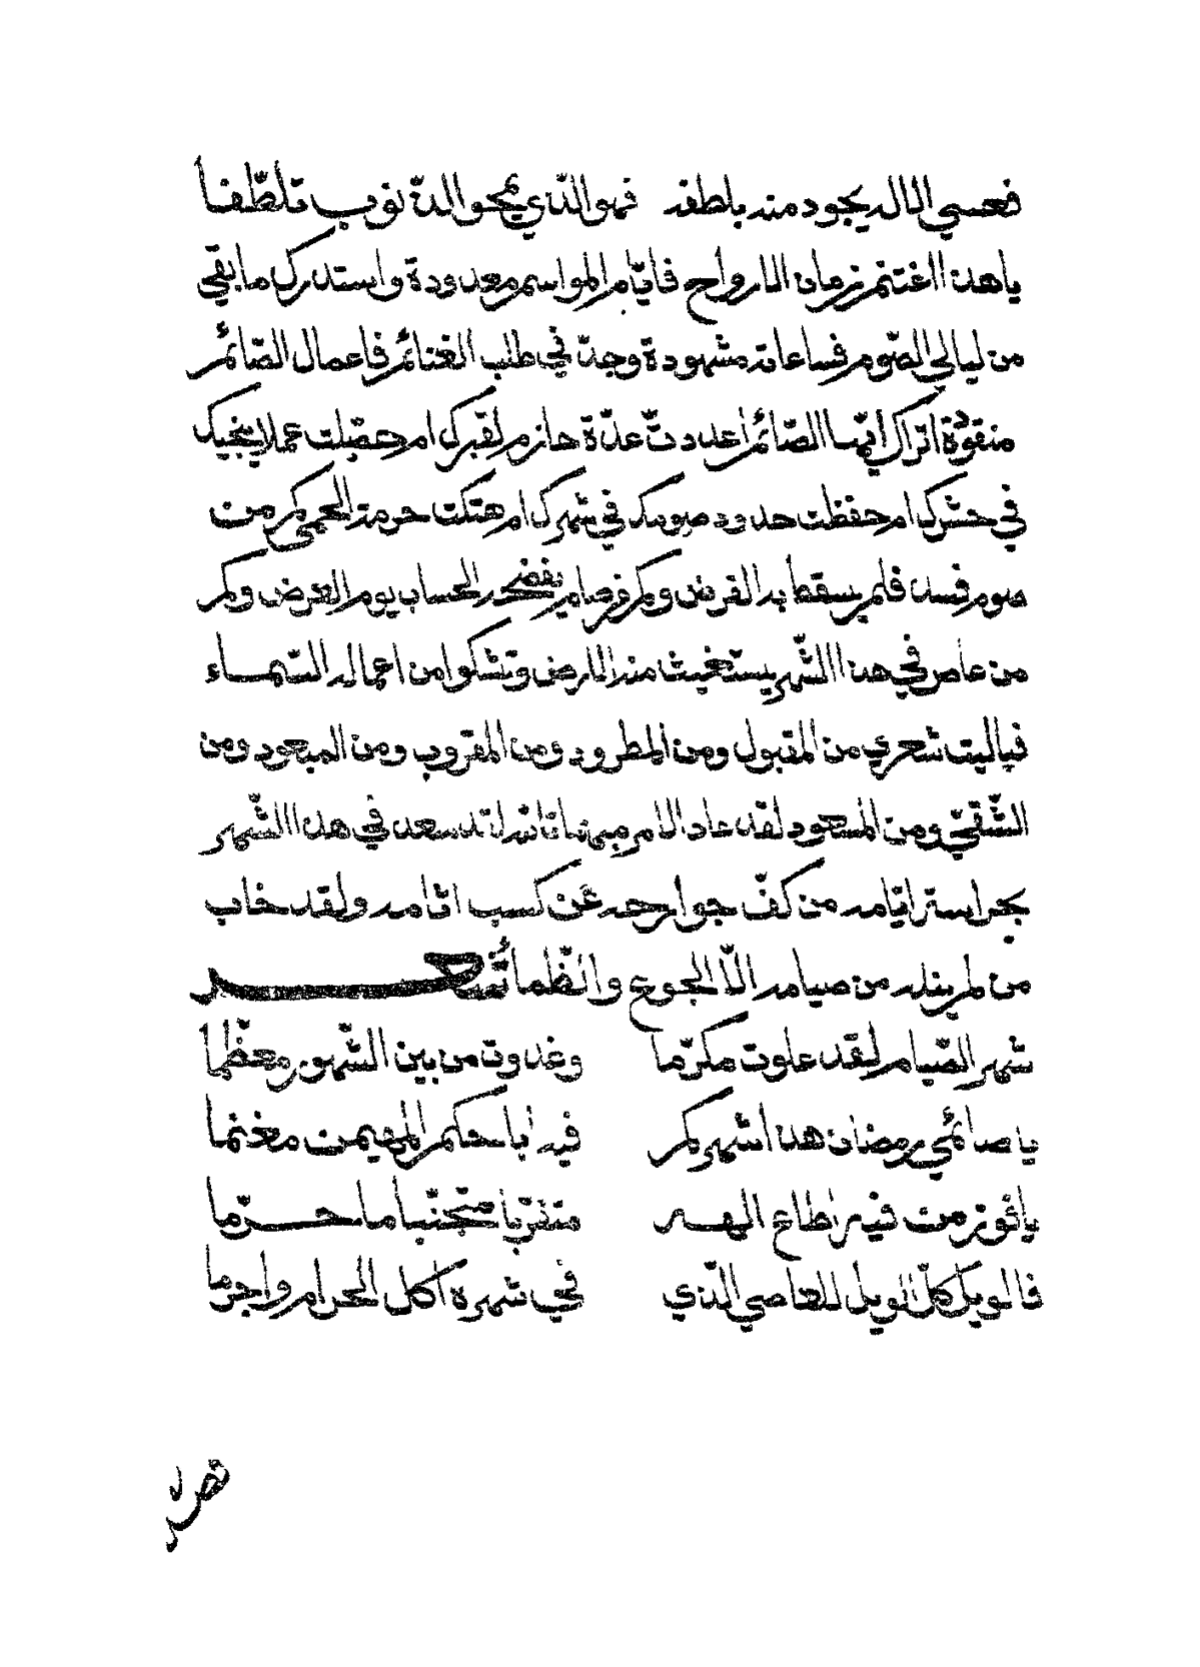 فعسي الاله يجود منه بلطفه فهو الّذي يمحو الذّنوب تلطّفا
يا هذا اغتنم زمان الارواح فايّام المواسم معدودة واستدرك ما بقي
من ليالي الصّوم فساعاته مشهودة وجدّ في طلب الغنائم فاعمال الصّائم
منقودة اتراك أيّها الصّائم اعددتّ عدّة حازم لقبرك ام حصّلت عملا ينجيك
في حشرك ام حفظت حدود صومك في شهرك ام هتكت حرمة الحمي كم من
صوم فسد فلم يسقط به الفرض وكم من صايم يفضحه الحساب يوم العرض وكم
من عاص في هذا الشّهر يستغيث منه الارض وتشكوا من اعماله السّماء
فياليت شعري من المقبول ومن المطرود ومن المقروب ومن المبعود ومن
الشّقيّ ومن المسعود لقد عاد الامر مبهما تالله لقد سعد في هذا الشّهر
بحراسة ايّامه من كفّ جوارحه عن كسب اثامه ولقد خاب
من لم ينله من صيامه الّا الجوع والظّما شعر
شهر الصّيام لقد علوت مكرّما وغدوت من بين الشّهور معظّما
يا صائمي رمضان هذا شهركم فيه اباحكم المهيمن مغنما
يا فوز من فيه اطاع الهه متقرّبا متجنّبا ما حرّما
فالويل كلّ الويل للعاصي الّذي في شهره اكل الحرام واجرما